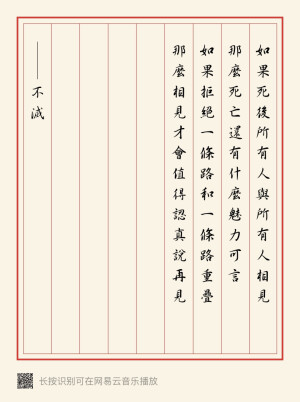 如果死後所有人與所有人相見
那麼死亡還有什麼魅力可言
如果拒絕一條路和一條路重疊
那麼相見才會值得認真說再見
——不滅
长按识别可在网易云音乐播放